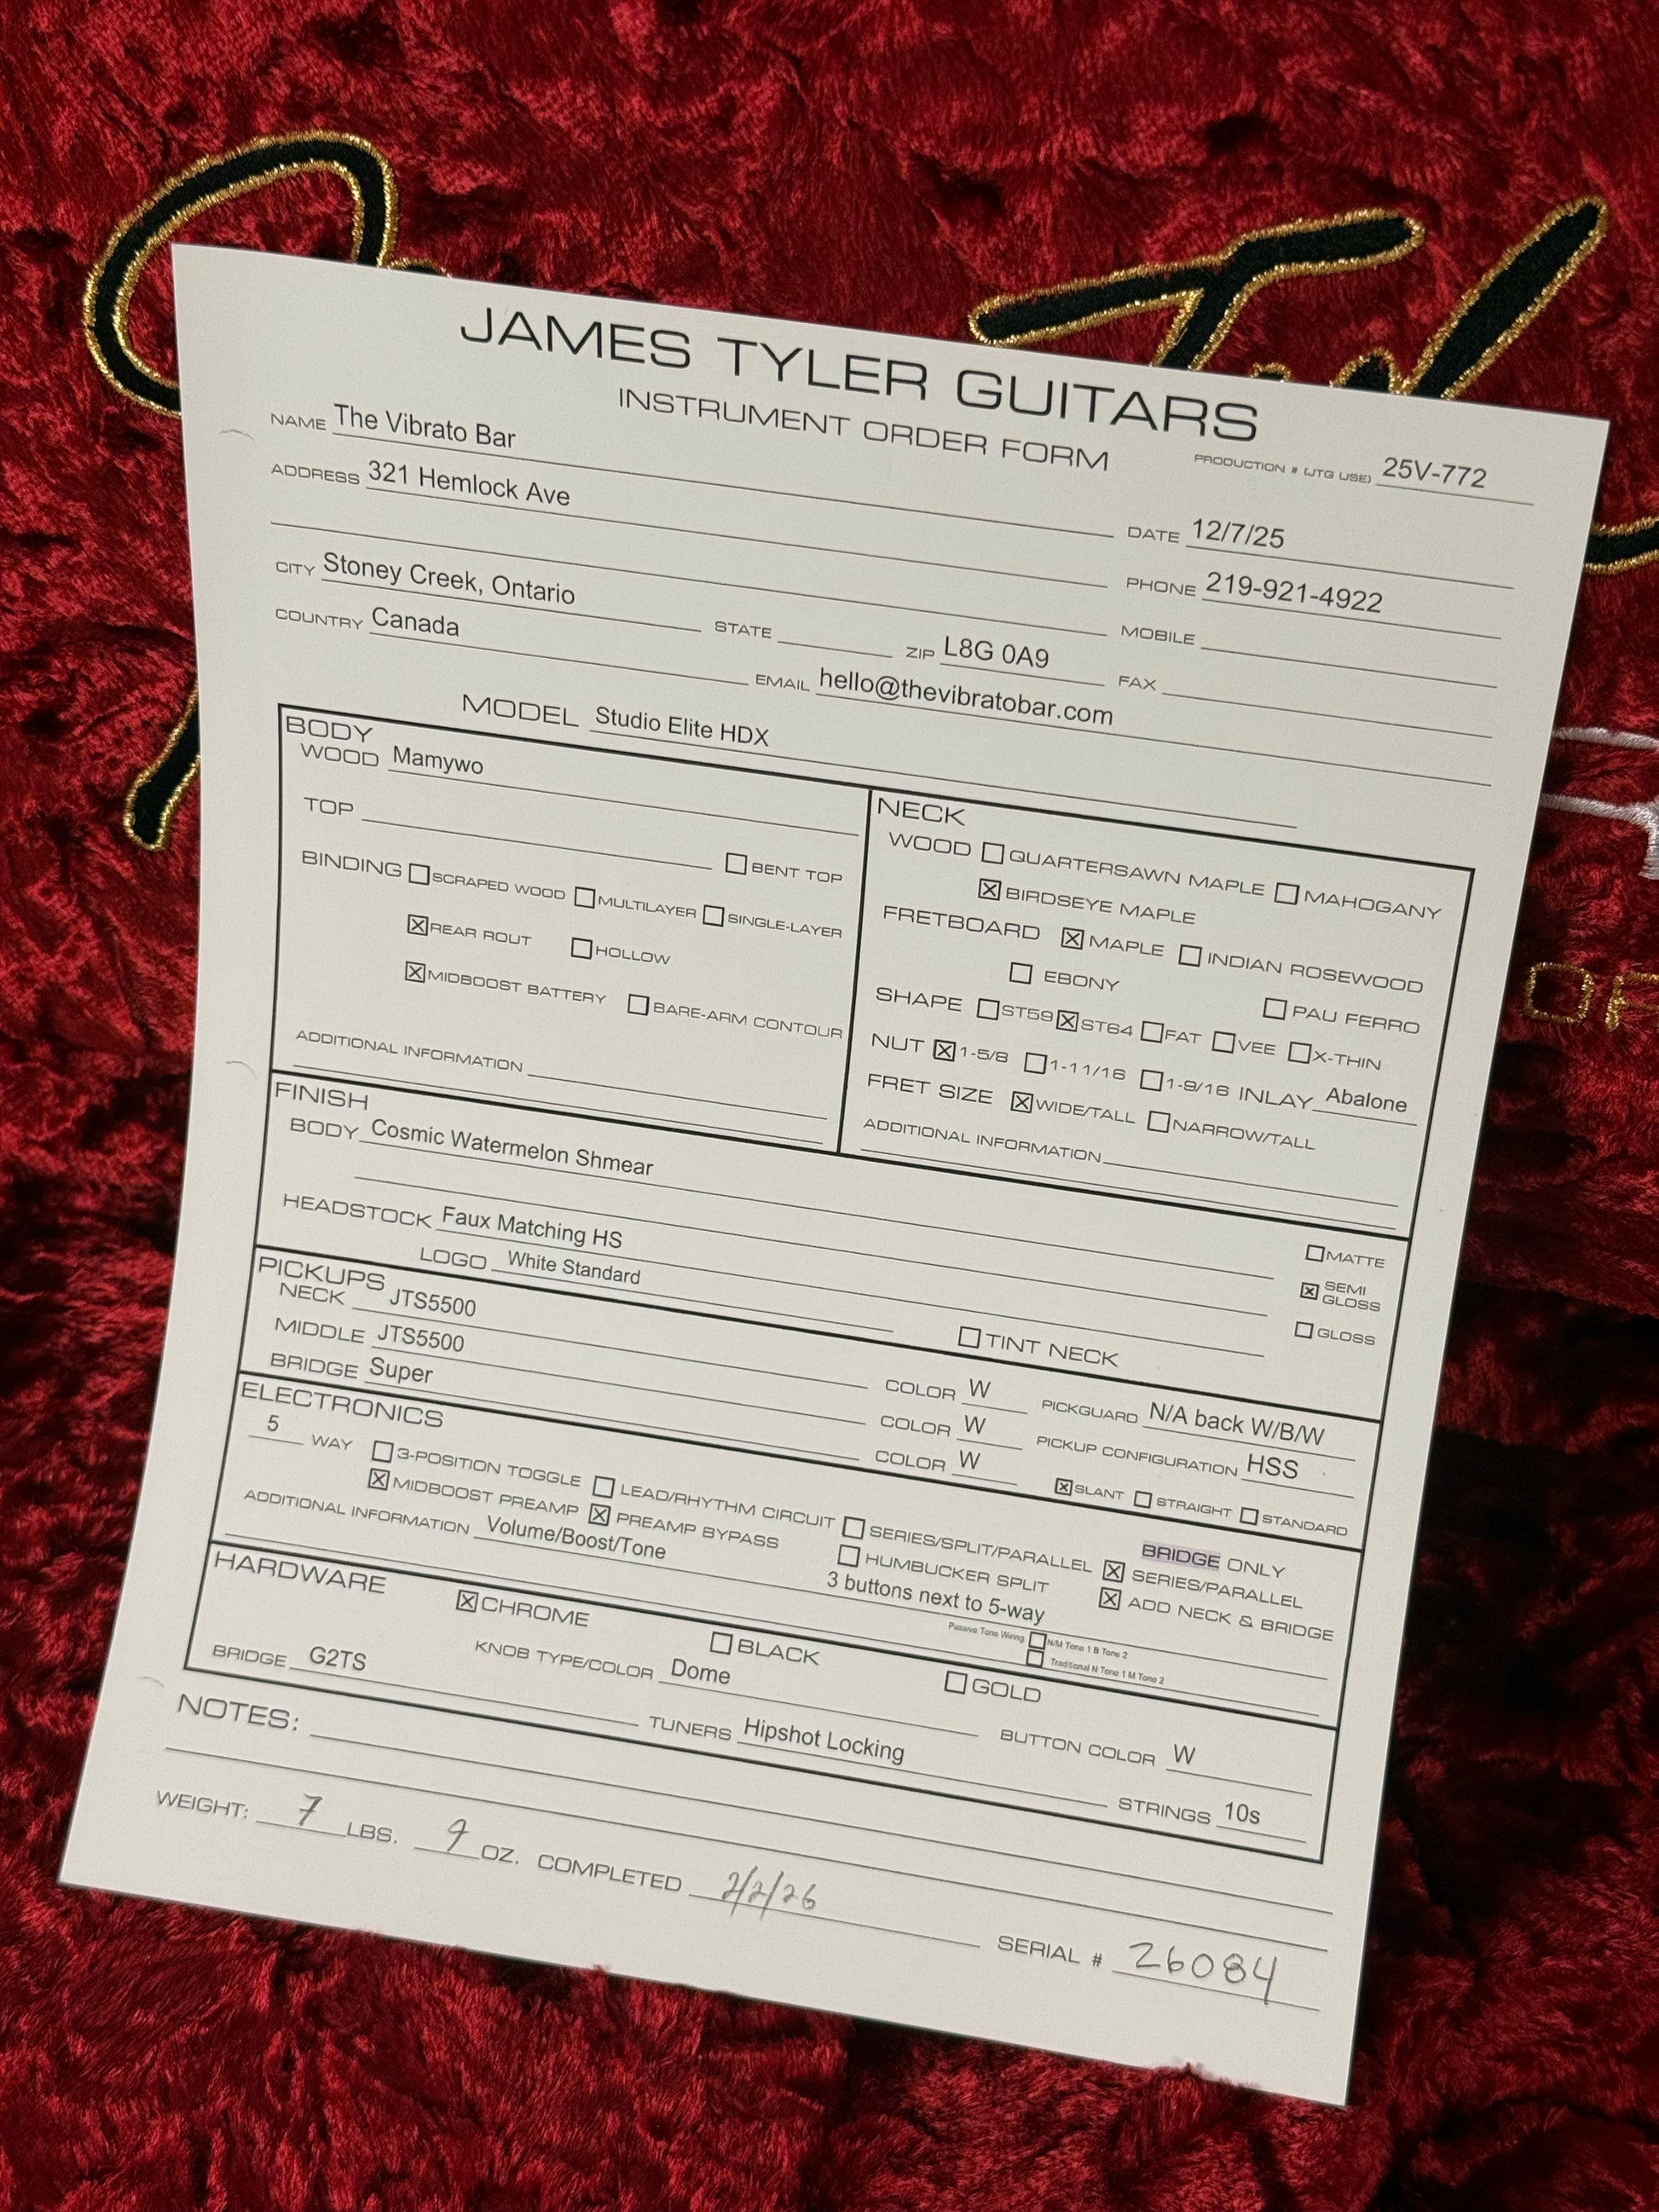 JAMES TYLER GUITARS
INSTRUMENT ORDER FORM
PRODUCTION # (JTG USE) 25V-772
NAME The Vibrato Bar
DATE 12/7/25
ADDRESS 321 Hemlock Ave
PHONE 219-921-4922
MOBILE
CITY Stoney Creek, Ontario STATE ZIP L8G 0A9 FAX
COUNTRY Canada EMAIL hello@thevibratobar.com
MODEL Studio Elite HDX
BODY
WOOD Mamywo
TOP
☐ BENT TOP
BINDING ☐ SCRAPED WOOD ☐ MULTILAYER ☐ SINGLE-LAYER
☒ REAR ROUT ☐ HOLLOW
☒ MIDBOOST BATTERY ☐ BARE-ARM CONTOUR
ADDITIONAL INFORMATION
NECK
WOOD ☐ QUARTERSAWN MAPLE ☐ MAHOGANY
☒ BIRDSEYE MAPLE
FRETBOARD ☒ MAPLE ☐ INDIAN ROSEWOOD
☐ EBONY ☐ PAU FERRO
SHAPE ☐ ST59 ☒ ST64 ☐ FAT ☐ VEE ☐ X-THIN
NUT ☒ 1-5/8 ☐ 1-11/16 ☐ 1-9/16 INLAY Abalone
FRET SIZE ☒ WIDE/TALL ☐ NARROW/TALL
ADDITIONAL INFORMATION
FINISH
BODY Cosmic Watermelon Shmear
☐ MATTE
HEADSTOCK Faux Matching HS
☒ SEMI GLOSS
LOGO White Standard
☐ TINT NECK
☐ GLOSS
PICKUPS
NECK JTS5500 COLOR W PICKGUARD N/A back W/B/W
MIDDLE JTS5500 COLOR W PICKUP CONFIGURATION HSS
BRIDGE Super COLOR W ☒ SLANT ☐ STRAIGHT ☐ STANDARD
ELECTRONICS
5 WAY ☐ 3-POSITION TOGGLE ☐ LEAD/RHYTHM CIRCUIT ☐ SERIES/SPLIT/PARALLEL
BRIDGE ONLY
☒ SERIES/PARALLEL
☒ MIDBOOST PREAMP ☒ PREAMP BYPASS ☐ HUMBUCKER SPLIT ☒ ADD NECK & BRIDGE
ADDITIONAL INFORMATION Volume/Boost/Tone 3 buttons next to 5-way
Passive Tone Wiring ☐ N/M Tone 1 B Tone 2
☐ Traditional N Tone 1 M Tone 2
HARDWARE
☒ CHROME ☐ BLACK ☐ GOLD
KNOB TYPE/COLOR Dome BUTTON COLOR W
BRIDGE G2TS TUNERS Hipshot Locking STRINGS 10s
NOTES:
WEIGHT: 7 LBS. 9 OZ. COMPLETED 2/2/26 SERIAL # 26084